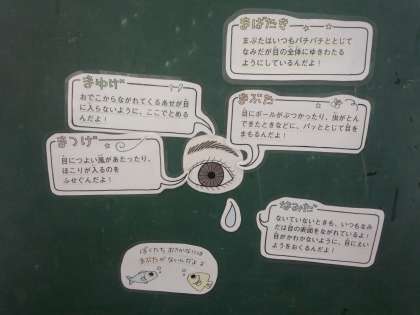 まばたき
まぶたはいつもパチパチととじて
なみだが目の全体にゆきわたる
ようにしているんだよ！
まゆげ
おでこからながれてくるあせが目
に入らないように、ここでとめる
んだよ！
まぶた
目にボールがぶつかったり、虫がとん
できたときなどに、パッととじて目を
まもるんだよ！
まつげ
目につよい風があたったり、
ほこりが入るのを
ふせぐんだよ！
なみだ
ないていないときも、いつもなみ
だは目の表面をながれているよ！
目がかわかないように、目にえい
ようをおくるんだよ！
ぼくたち おさかなには
まぶたが ないんだよ